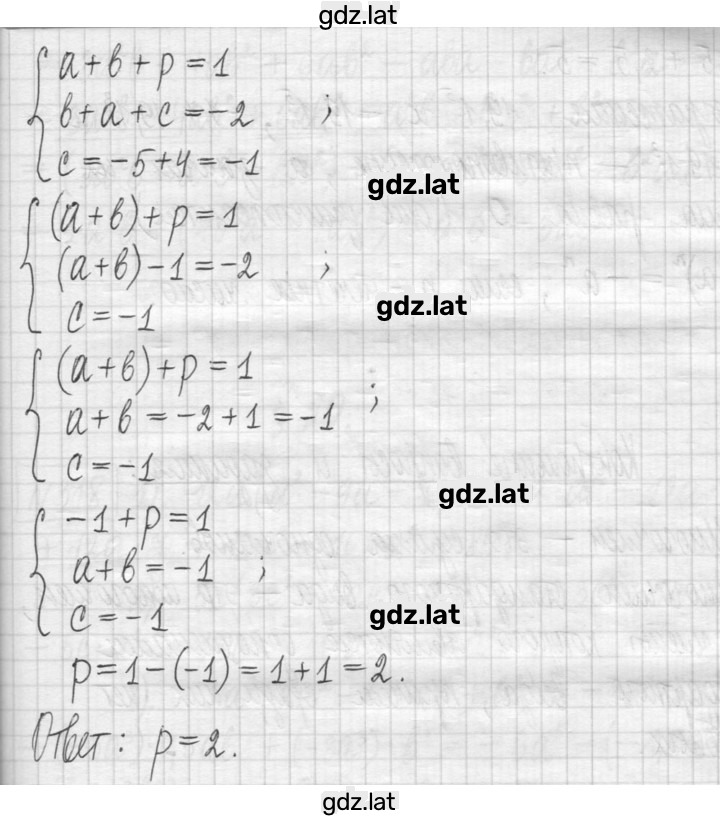 gdz.lat
a+в+p=1
в+a+c=-2 ;
c=-5+4=-1
gdz.lat
(a+в)+p=1
(a+в)-1=-2 ;
gdz.lat
c=-1
(a+в)+p=1
a+в=-2+1=-1 ;
c=-1
gdz.lat
-1+p=1
a+в=-1 ;
c=-1
gdz.lat
p=1-(-1)=1+1=2.
Ответ: p=2.
gdz.lat